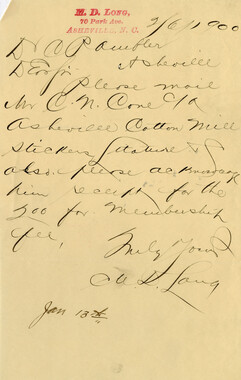 M. D. LONG,
70 Park Ave.
ASHEVILLE, N. C.
2/6/1900
Dr. C P Ambler
Asheville
Dear Sir
Please mail
Mr C. N. Cone c/o
Asheville Cotton Mill
Stickers &
also please
him receipt for the
200 for Membership
fee,
Truly Yours
M. D. Long
Jan 13th